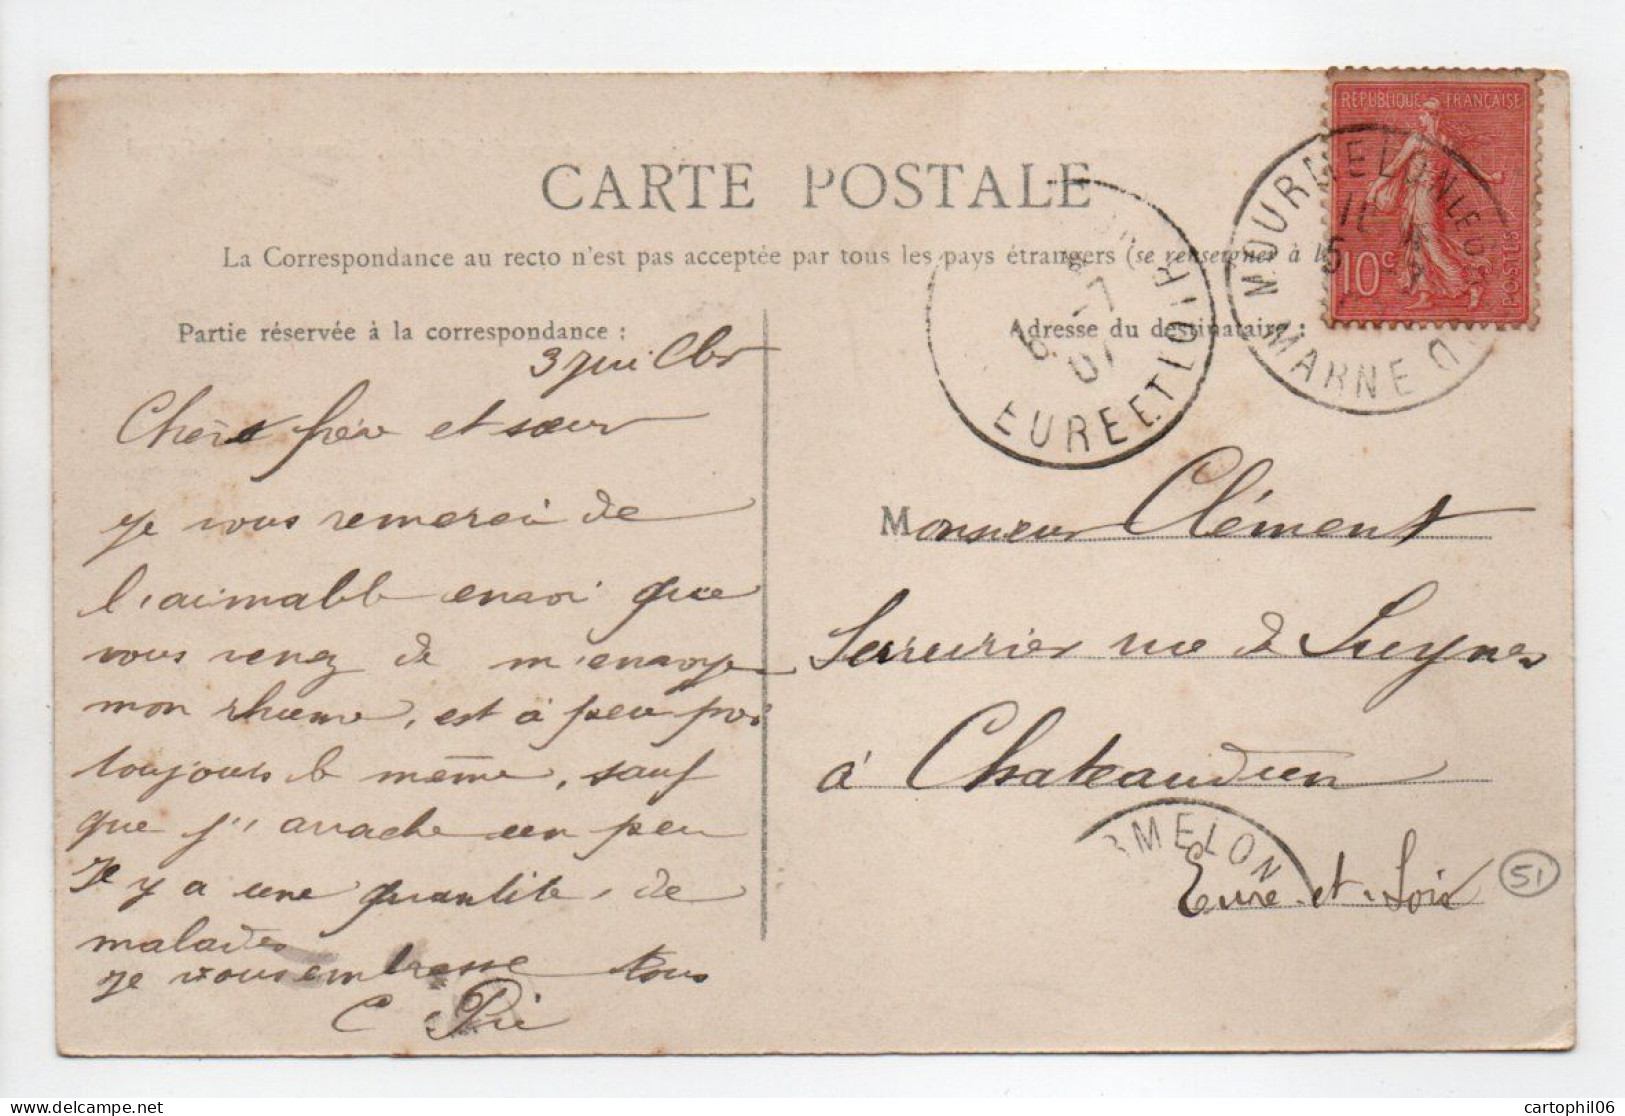 CARTE POSTALE
La Correspondance au recto n'est pas acceptée par tous les pays étrangers (se renseigner à la
Partie réservée à la correspondance :
3 juillet
Chers frère et sœur
je vous remerci de
l'aimable envoi que
vous venez de m'envoye
mon rhume, est à peu près
toujours le même, sauf
que j' arrache un peu
Il y a une quantité de
malades
je vous embrasse tous
C
Adresse du destinataire :
Monsieur Clément
Serrurier rue de Luynes
à Chateaudun
Eure et Loir
51
REPUBLIQUE FRANÇAISE
10c
POSTES
MOURMELON LE G
MARNE
6 -7
07
EURE ET LOIR
RMELON
cartophil06